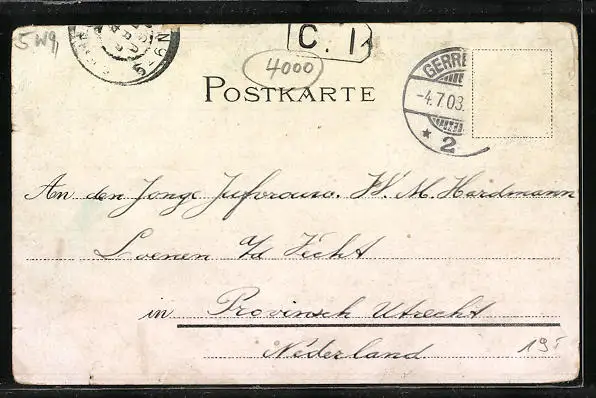 C. 1
4000
POSTKARTE
GERRE
-4.7.03.
* 2
An den Jonge Jufvrouw. W. M. Hardmann
Loenen a/d Vecht
in Provinsch Utrecht
Nederland
195